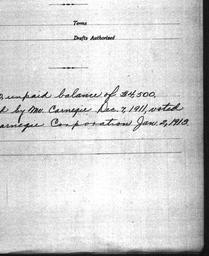 Terms
Drafts Authorized
unpaid balance of 34,500.
d by Mr. Carnegie Dec. 7, 1911, voted
arnegie Corporation Jan. 2, 1913.